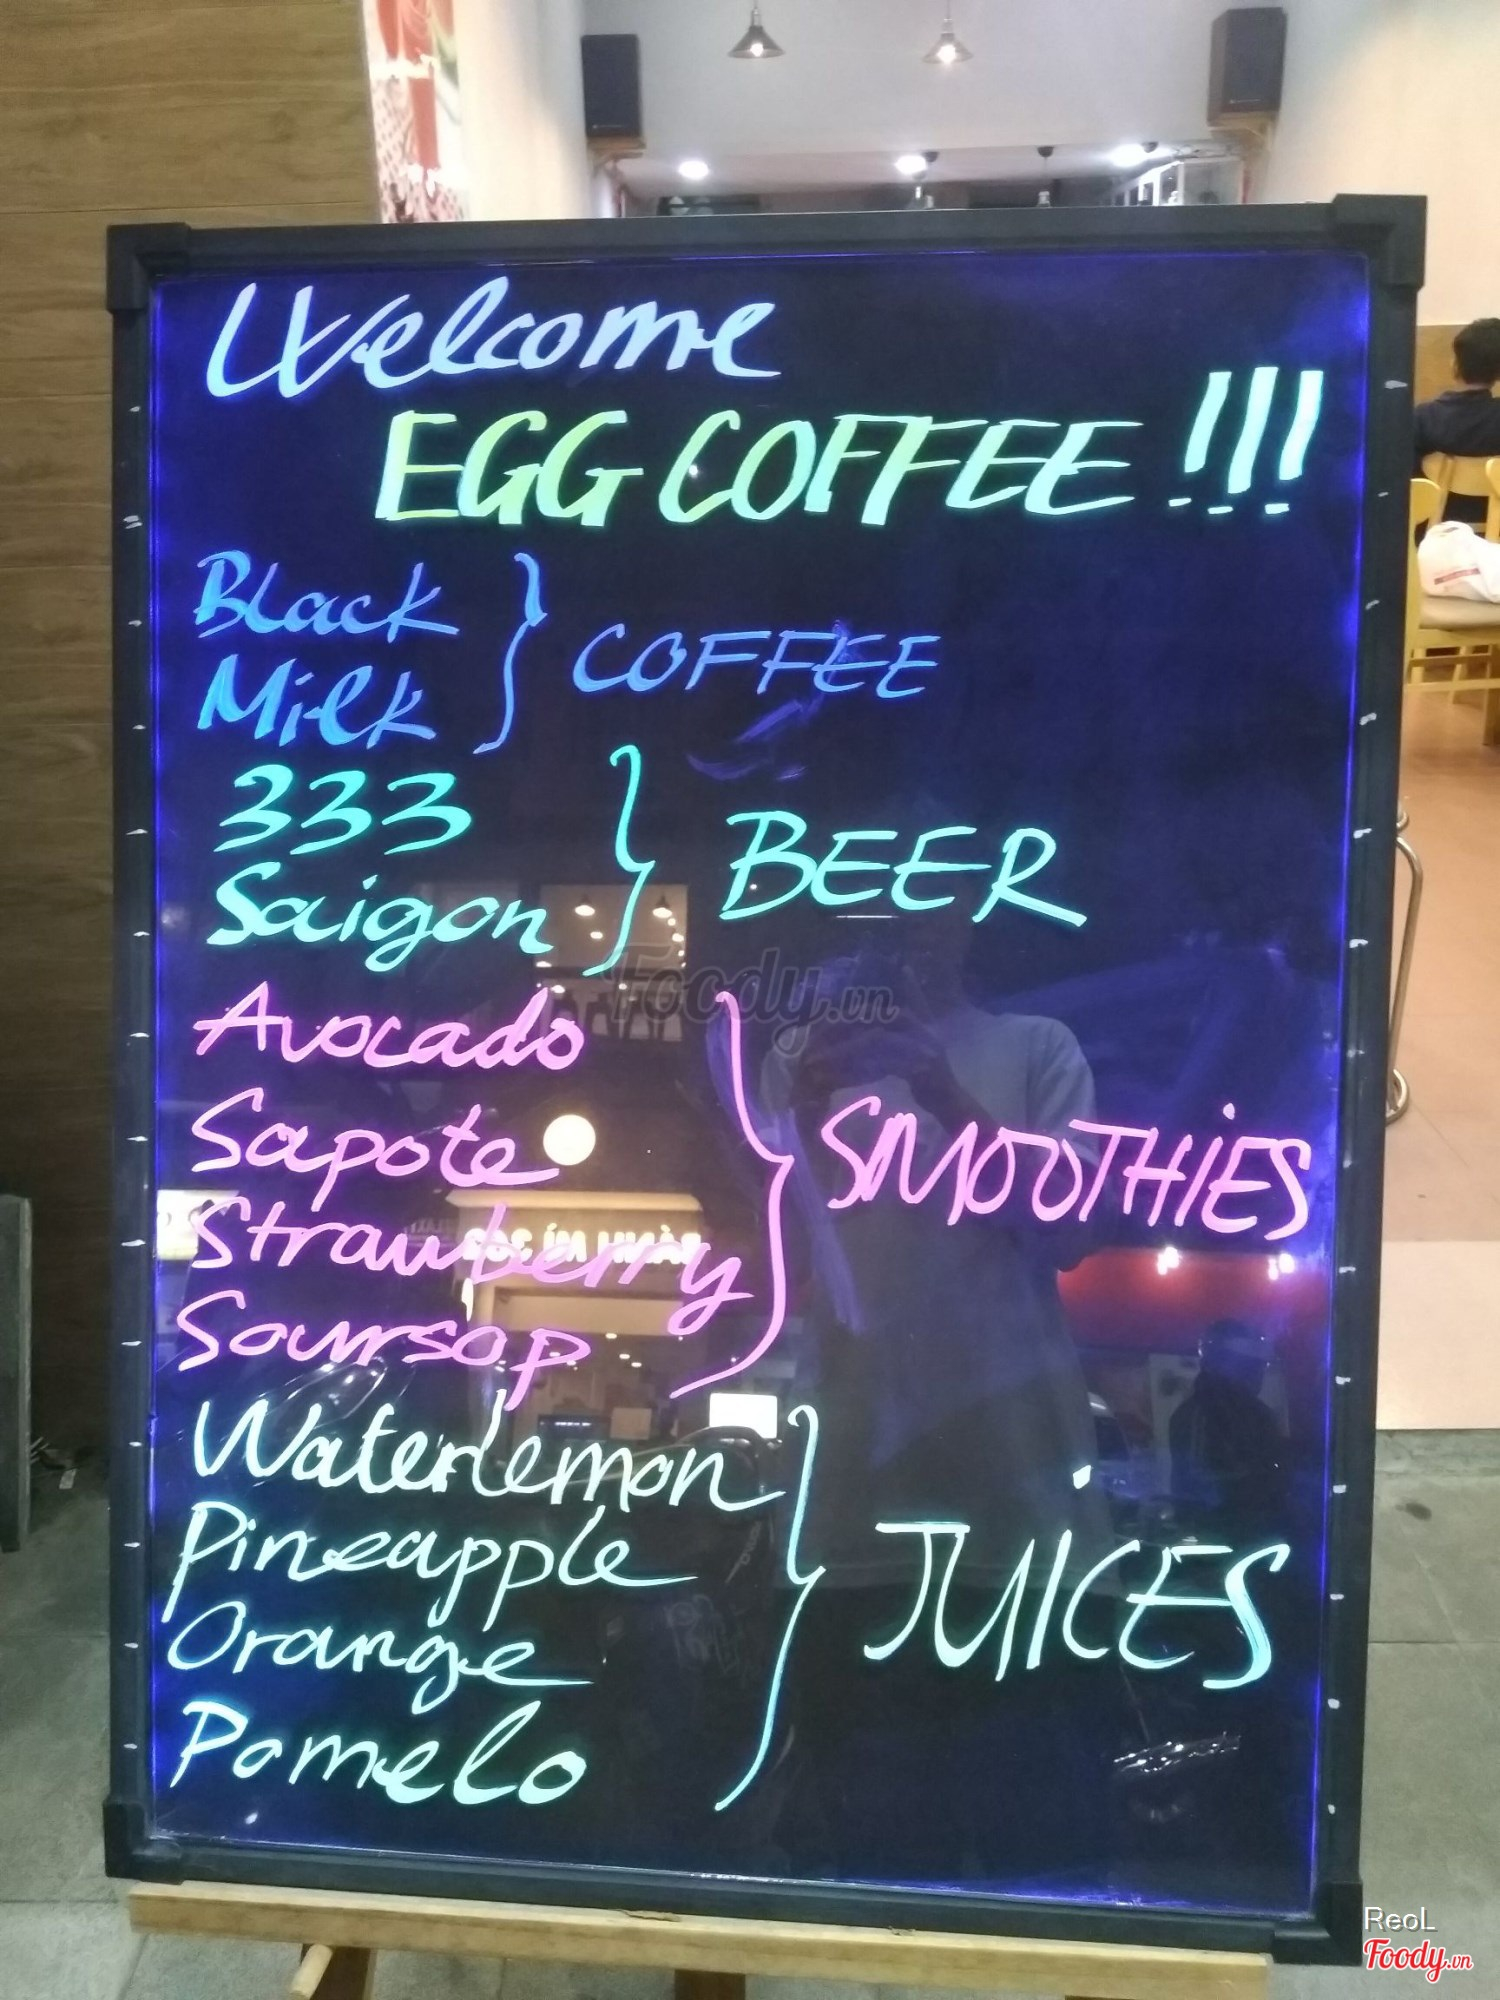 Welcome
EGG COFFEE !!!
Black
Milk
COFFEE
333
Saigon
BEER
Avocado
Sapote
Strawberry
Soursop
SMOOTHIES
Waterlemon
Pineapple
Orange
Pomelo
JUICES
Foody.vn
ReoL
Foody.vn